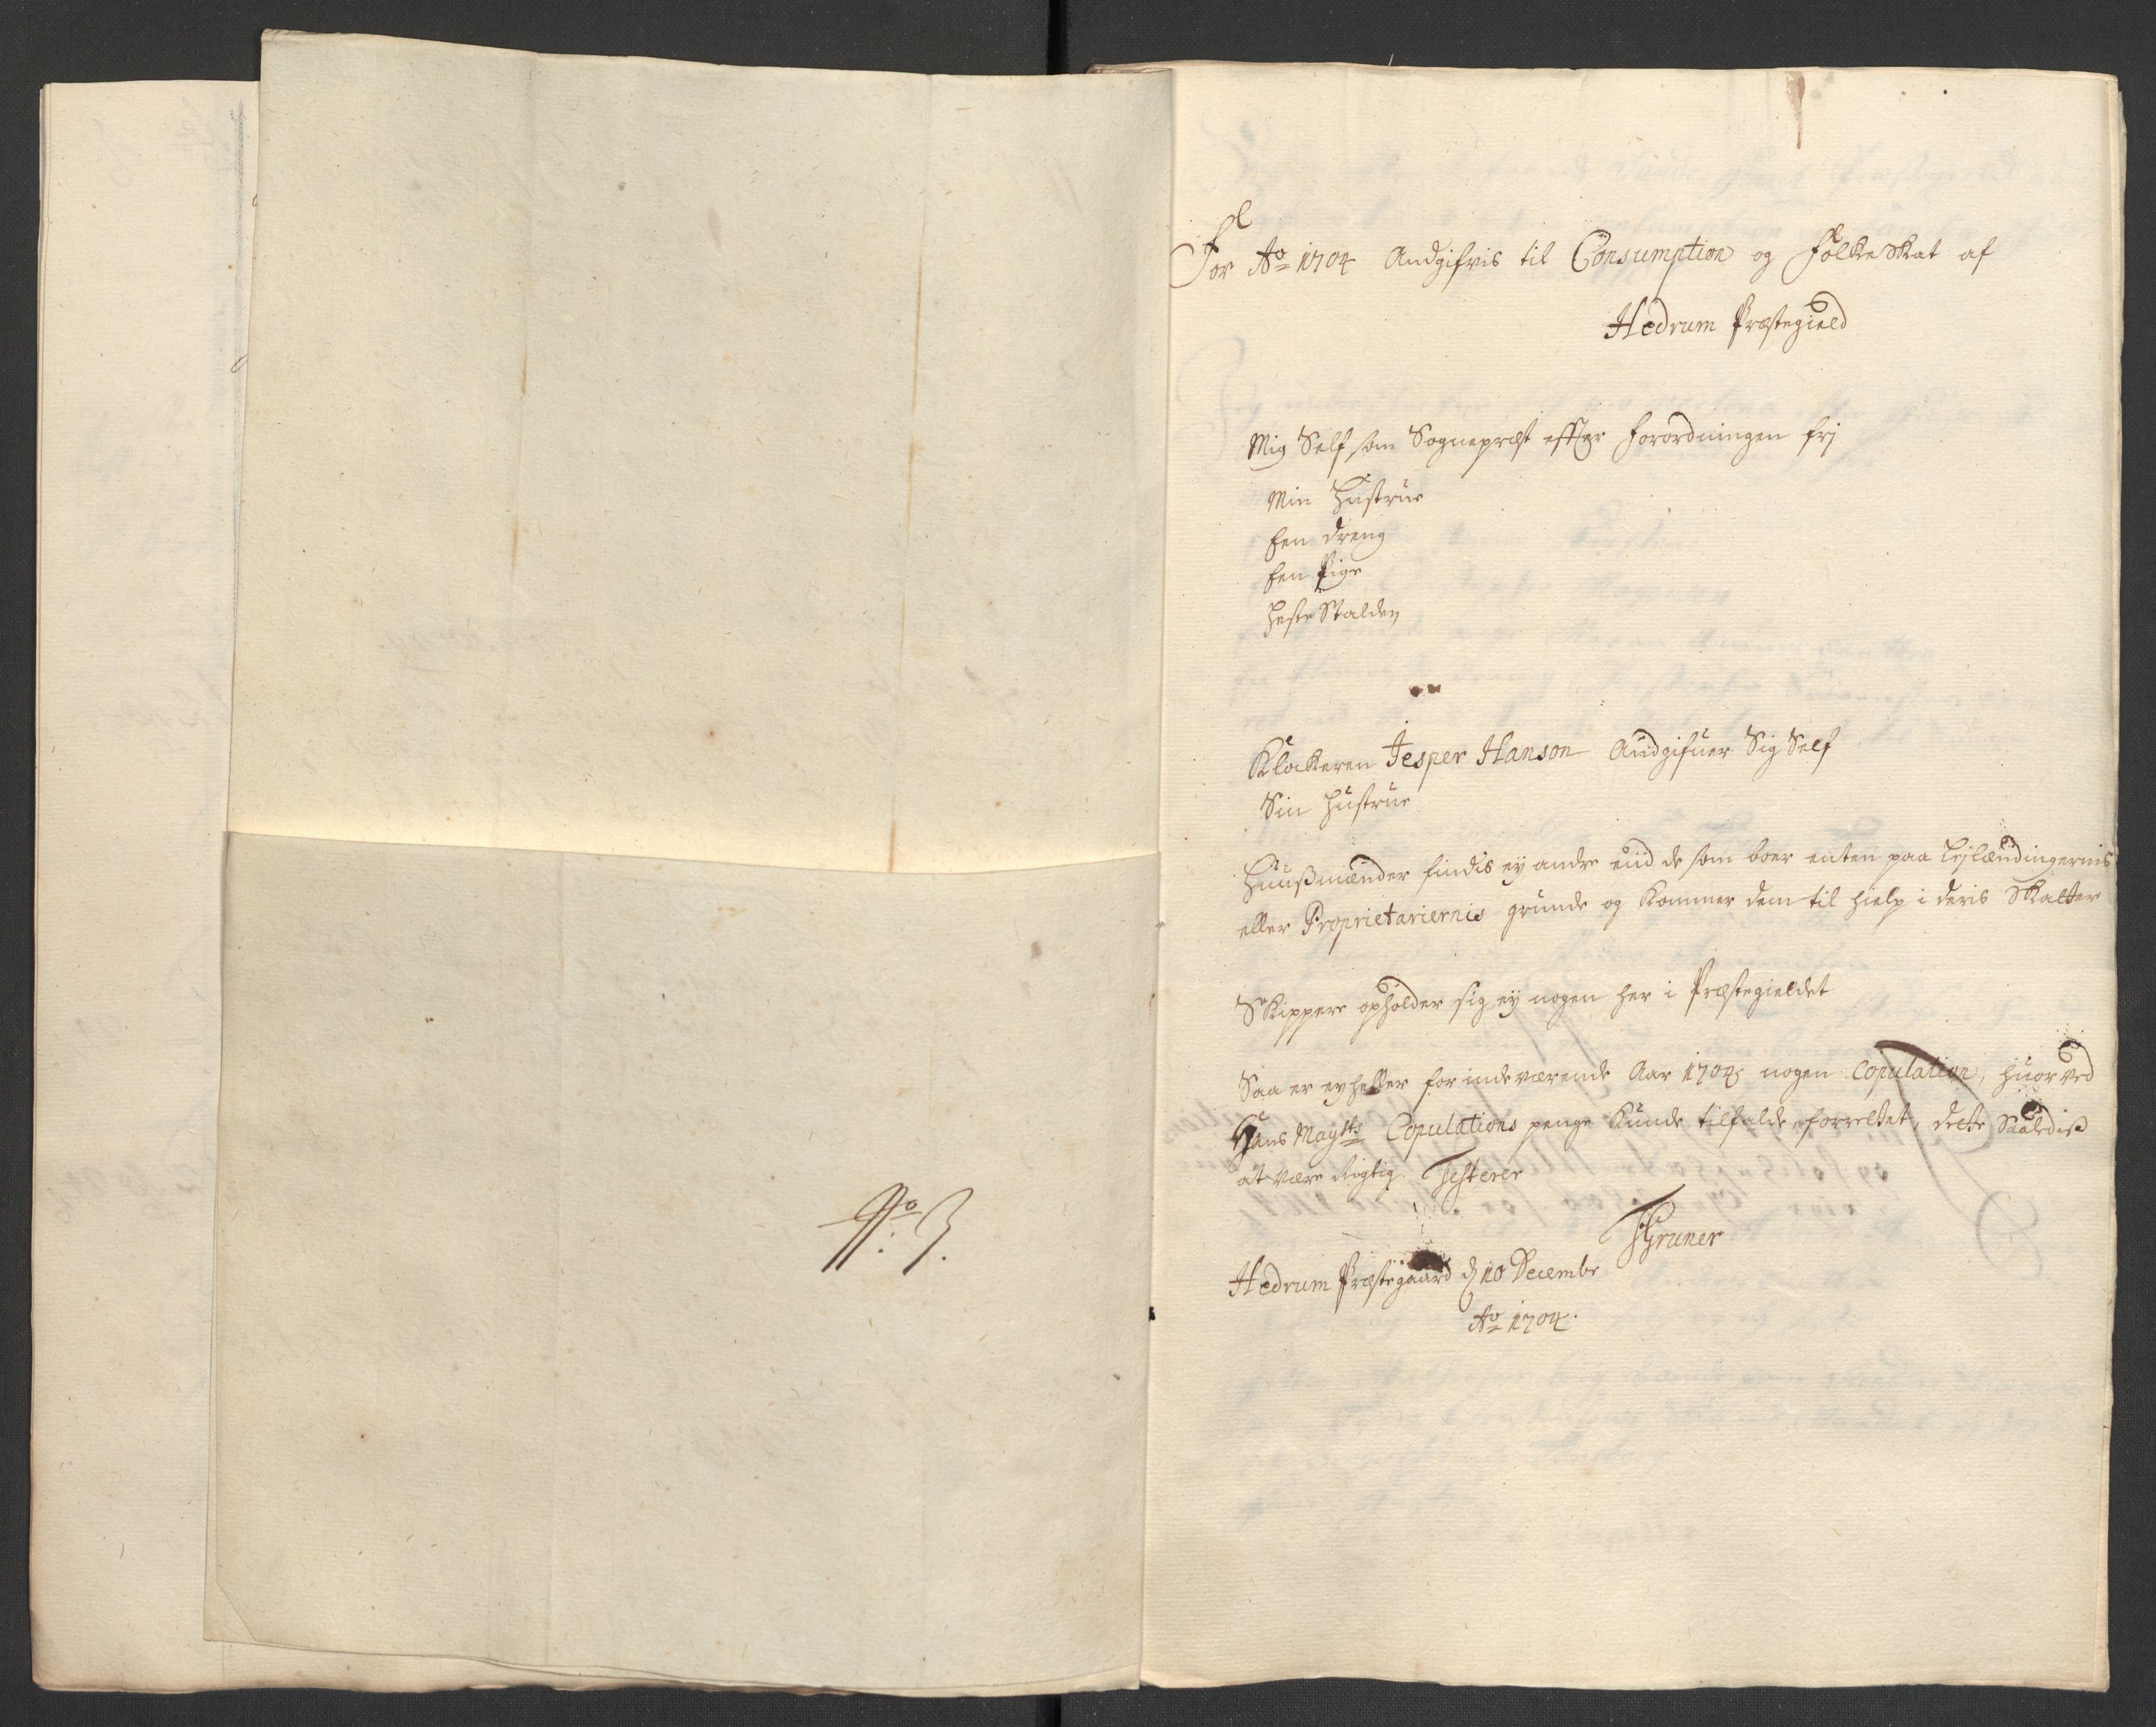 No: 3.
For Ao 1704 Andgifvis til Consumption og FolkeSkat af
Hedrum Præstegield
Mig Self som Sognepræst effter Forordningen frj
Min Hustrue
Een dreng
Een Pige
Heste Stalden
Klockeren Jesper Hanson Andgifuer Sig Self
Sin Hustrue
Huußmænder findis ey andre end de som boer enten paa Lejlændingernis
eller Proprietariernis grunde og kommer dem til hielp i deris Skatter
Skippere opholder sig ey nogen her i Præstegieldet
Saa er ey heller for indeværende Aar 1704 nogen Copulation, huorved
Hans Maytts Copulations penge kunde tilfalde, forrettet, dette Saaledis
at være Rigtig Testerer
Gruner
Hedrum Præstegaard d 10 Decembr
Ao 1704.